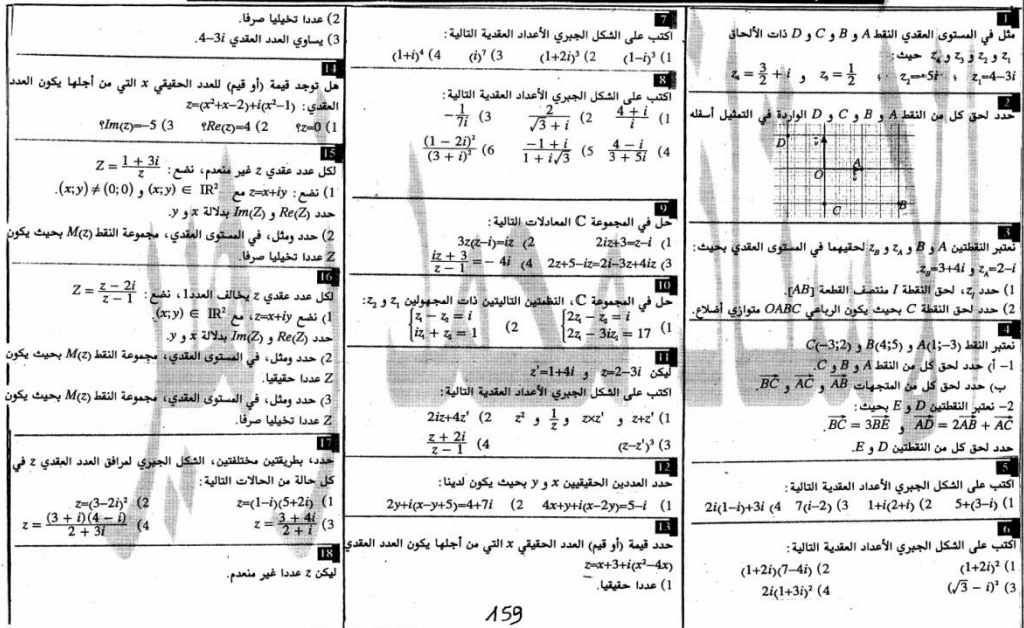 1
مثل في المستوى العقدي النقط A و B و C و D ذات الألحاق
z₁ و z₂ و z₃ و z₄ حيث:
z₁=4−3i ; z₂=−5i ; z₃ = 1/2 و z₄ = 3/2 + i
2
حدد لحق كل من النقط A و B و C و D الواردة في التمثيل أسفله
D
A
O
C
B
3
نعتبر النقطتين A و B و z_A و z_B لحقيهما في المستوى العقدي بحيث:
z_A=2−i و z_B=3+4i.
1) حدد z_I، لحق النقطة I منتصف القطعة [AB].
2) حدد لحق النقطة C بحيث يكون الرباعي OABC متوازي أضلاع.
4
نعتبر النقط A(1;−3) و B(4;5) و C(−3;2)
1− أ) حدد لحق كل من النقط A و B و C.
ب) حدد لحق كل من المتجهات AB و AC و BC.
2− نعتبر النقطتين D و E بحيث:
AD = 2AB + AC و BC = 3BE.
حدد لحق كل من النقطتين D و E.
5
اكتب على الشكل الجبري الأعداد العقدية التالية:
1) 5+(3−i) 2) 1+i(2+i) 3) 7(i−2) 4) 2i(1−i)+3i
6
اكتب على الشكل الجبري الأعداد العقدية التالية:
1) (1+2i)² 2) (1+2i)(7−4i)
3) (√3 − i)² 4) 2i(1+3i)²
7
اكتب على الشكل الجبري الأعداد العقدية التالية:
1) (1−i)³ 2) (1+2i)³ 3) (i)⁷ 4) (1+i)⁴
8
اكتب على الشكل الجبري الأعداد العقدية التالية:
1) (4 + i)/i 2) 2/(√3 + i) 3) −1/(7i)
4) (4 − i)/(3 + 5i) 5) (−1 + i)/(1 + i√3) 6) (1 − 2i)²/(3 + i)²
9
حل في المجموعة ℂ المعادلات التالية:
1) 2iz+3=z−i 2) 3z(z−i)=iz
3) 2z+5−iz=2i−3z+4iz 4) (iz + 3)/(z − 1) = − 4i
10
حل في المجموعة ℂ، النظمتين التاليتين ذات المجهولين z₁ و z₂:
1) {2z₁ − z₂ = i 2) {z₁ − z₂ = i
{2z₁ − 3iz₂ = 17 {iz₁ + z₂ = 1
11
ليكن z=2−3i و z'=1+4i
اكتب على الشكل الجبري الأعداد العقدية التالية:
1) z+z' و z×z' و 1/z و z² 2) 2iz+4z'
3) (z−z')³ 4) (z + 2i)/(z − 1)
12
حدد العددين الحقيقيين x و y بحيث يكون لدينا:
1) 4x+y+i(x−2y)=5−i 2) 2y+i(x−y+5)=4+7i
13
حدد قيمة (أو قيم) العدد الحقيقي x التي من أجلها يكون العدد العقدي
z=x+3+i(x²−4x)
1) عددا حقيقيا.
2) عددا تخيليا صرفا.
3) يساوي العدد العقدي 4−3i.
14
هل توجد قيمة (أو قيم) للعدد الحقيقي x التي من أجلها يكون العدد
العقدي: z=(x²+x−2)+i(x²−1)
1) z=0؟ 2) Re(z)=4؟ 3) Im(z)=−5؟
15
لكل عدد عقدي z غير منعدم، نضع: Z = (1 + 3i)/z
1) نضع: z=x+iy مع (x;y) ∈ IR² و (x;y) ≠ (0;0).
حدد Re(Z) و Im(Z) بدلالة x و y.
2) حدد ومثل، في المستوى العقدي، مجموعة النقط M(z) بحيث يكون
Z عددا تخيليا صرفا.
16
لكل عدد عقدي z يخالف العدد 1، نضع: Z = (z − 2i)/(z − 1)
1) نضع z=x+iy، مع (x;y) ∈ IR²
حدد Re(Z) و Im(Z) بدلالة x و y.
2) حدد ومثل، في المستوى العقدي، مجموعة النقط M(z) بحيث يكون
Z عددا حقيقيا.
3) حدد ومثل، في المستوى العقدي، مجموعة النقط M(z) بحيث يكون
Z عددا تخيليا صرفا.
17
حدد، بطريقتين مختلفتين، الشكل الجبري لمرافق العدد العقدي z في
كل حالة من الحالات التالية:
1) z=(1−i)(5+2i) 2) z=(3−2i)²
3) z = (3 + 4i)/(2 + i) 4) z = (3 + i)(4 − i)/(2 + 3i)
18
ليكن z عددا غير منعدم.
159